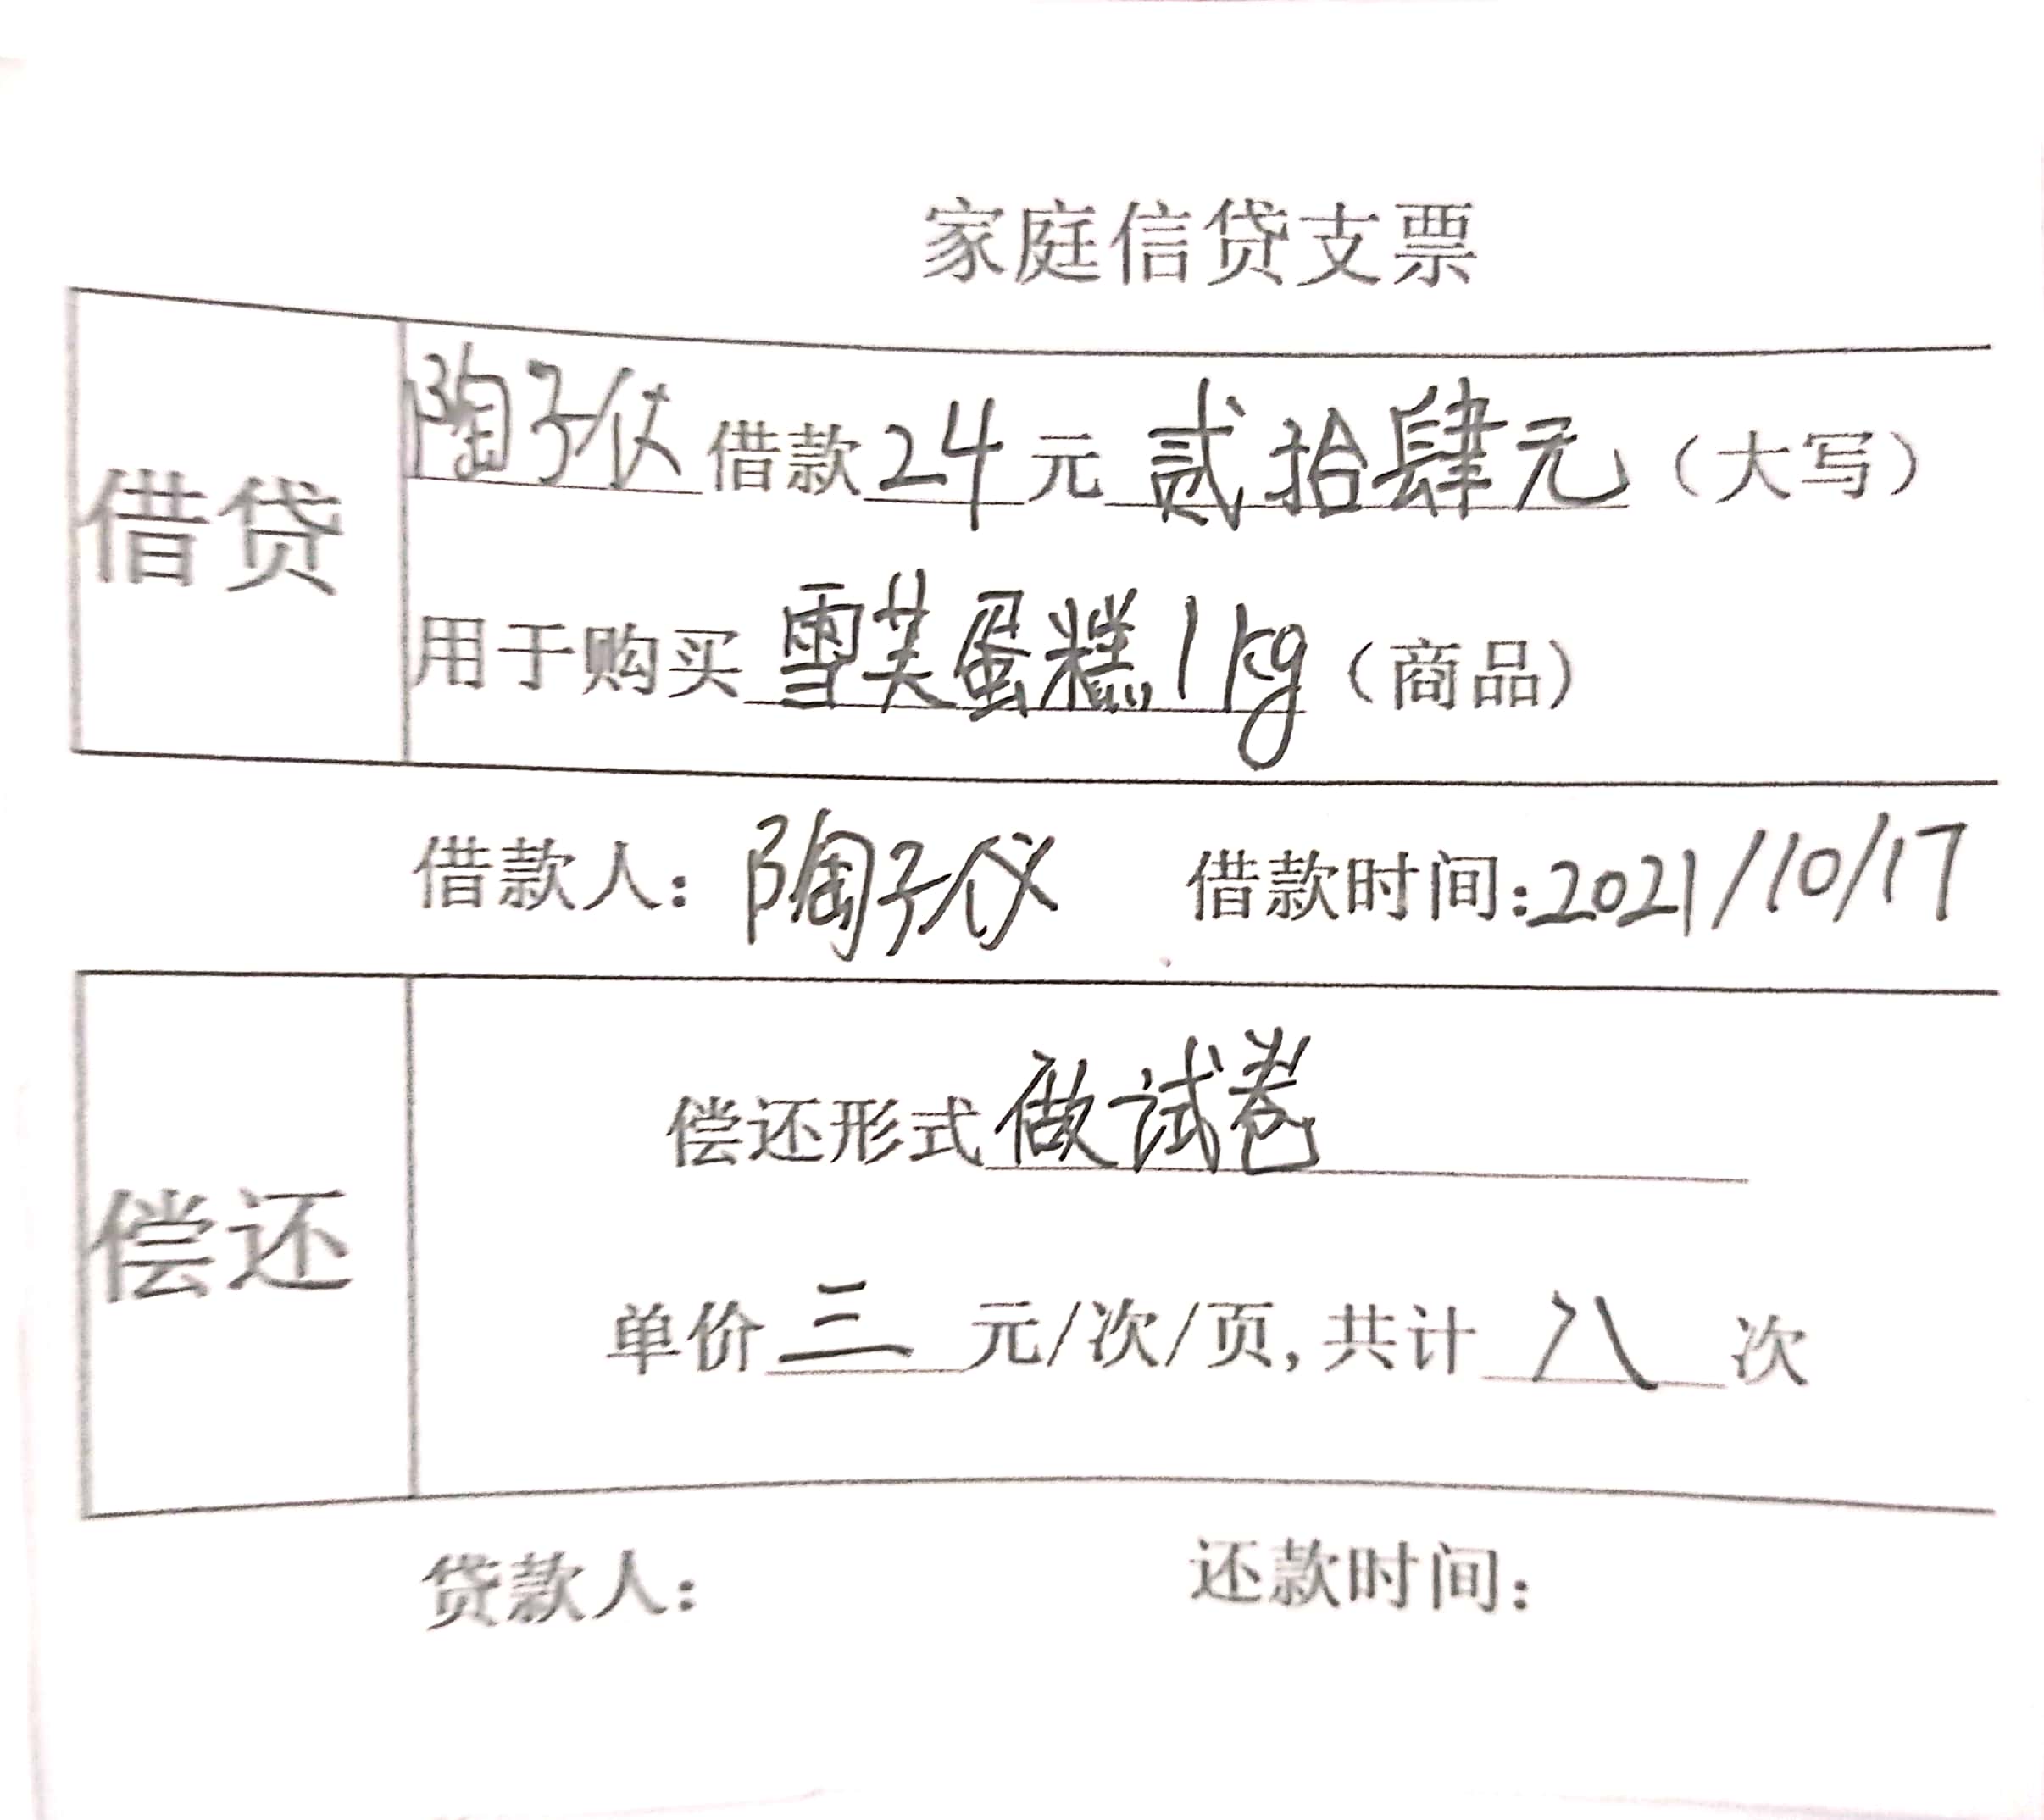 家庭信贷支票
借贷
陶子仪借款24元贰拾肆元（大写）
用于购买雪芙蛋糕1kg（商品）
借款人：陶子仪 借款时间:2021/10/17
偿还
偿还形式做试卷
单价三元/次/页,共计八次
贷款人： 还款时间：